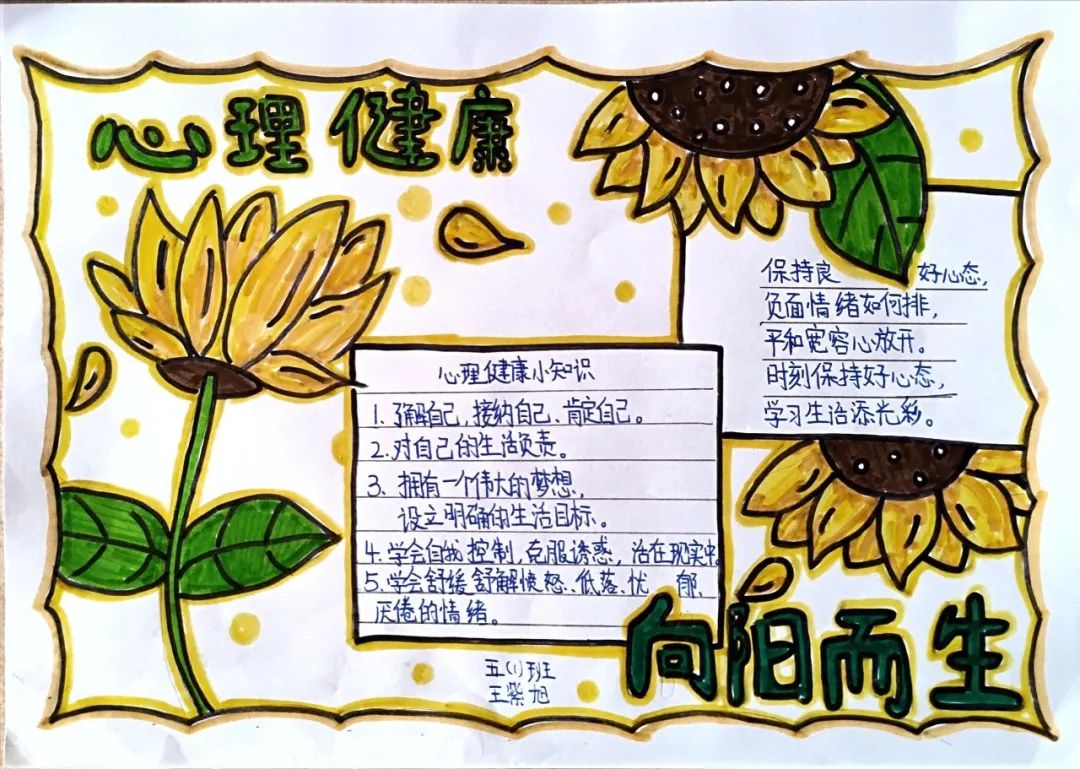 心理健康
保持良好心态,
负面情绪如何排,
平和宽容心放开。
时刻保持好心态,
学习生活添光彩。
心理健康小知识
1. 了解自己,接纳自己、肯定自己。
2. 对自己的生活负责。
3. 拥有一个伟大的梦想,
设立明确的生活目标。
4. 学会自我控制,克服诱惑,活在现实中。
5. 学会舒缓舒解愤怒、低落、忧郁、
厌倦的情绪。
向阳而生
五(1)班
王紫旭